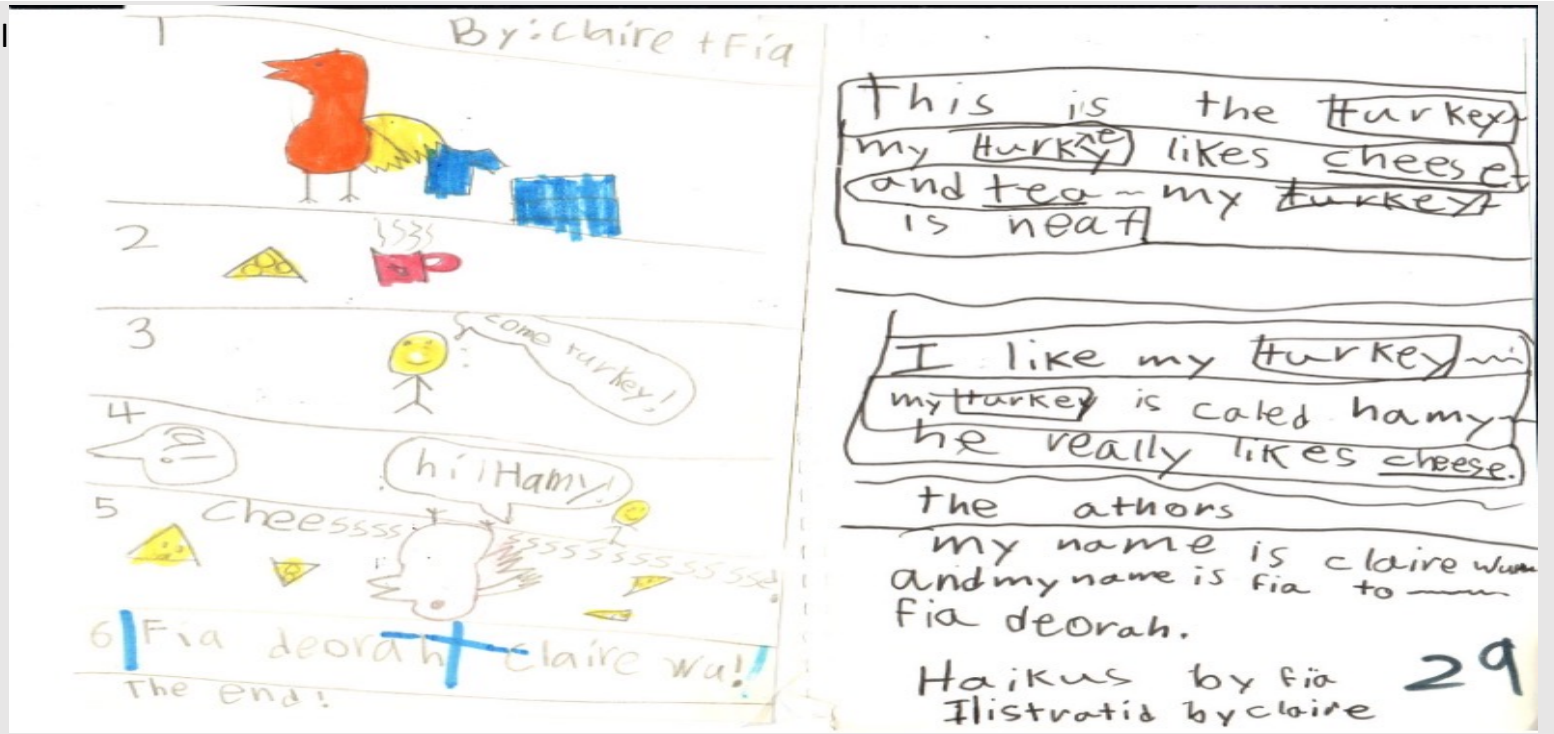 1 By: Claire + Fia
2
3
come turkey!
4
hi! Hamy!
5 Cheessssssssssssssse!
6 Fia deorah + Claire wu!!
The end!
This is the turkey
my turkey likes cheese
and tea – my turkey
is neat
I like my turkey
my turkey is caled hamy
he really likes cheese.
the athors
my name is claire wu
and my name is fia to
fia deorah.
Haikus by fia
Ilistratid by claire
29